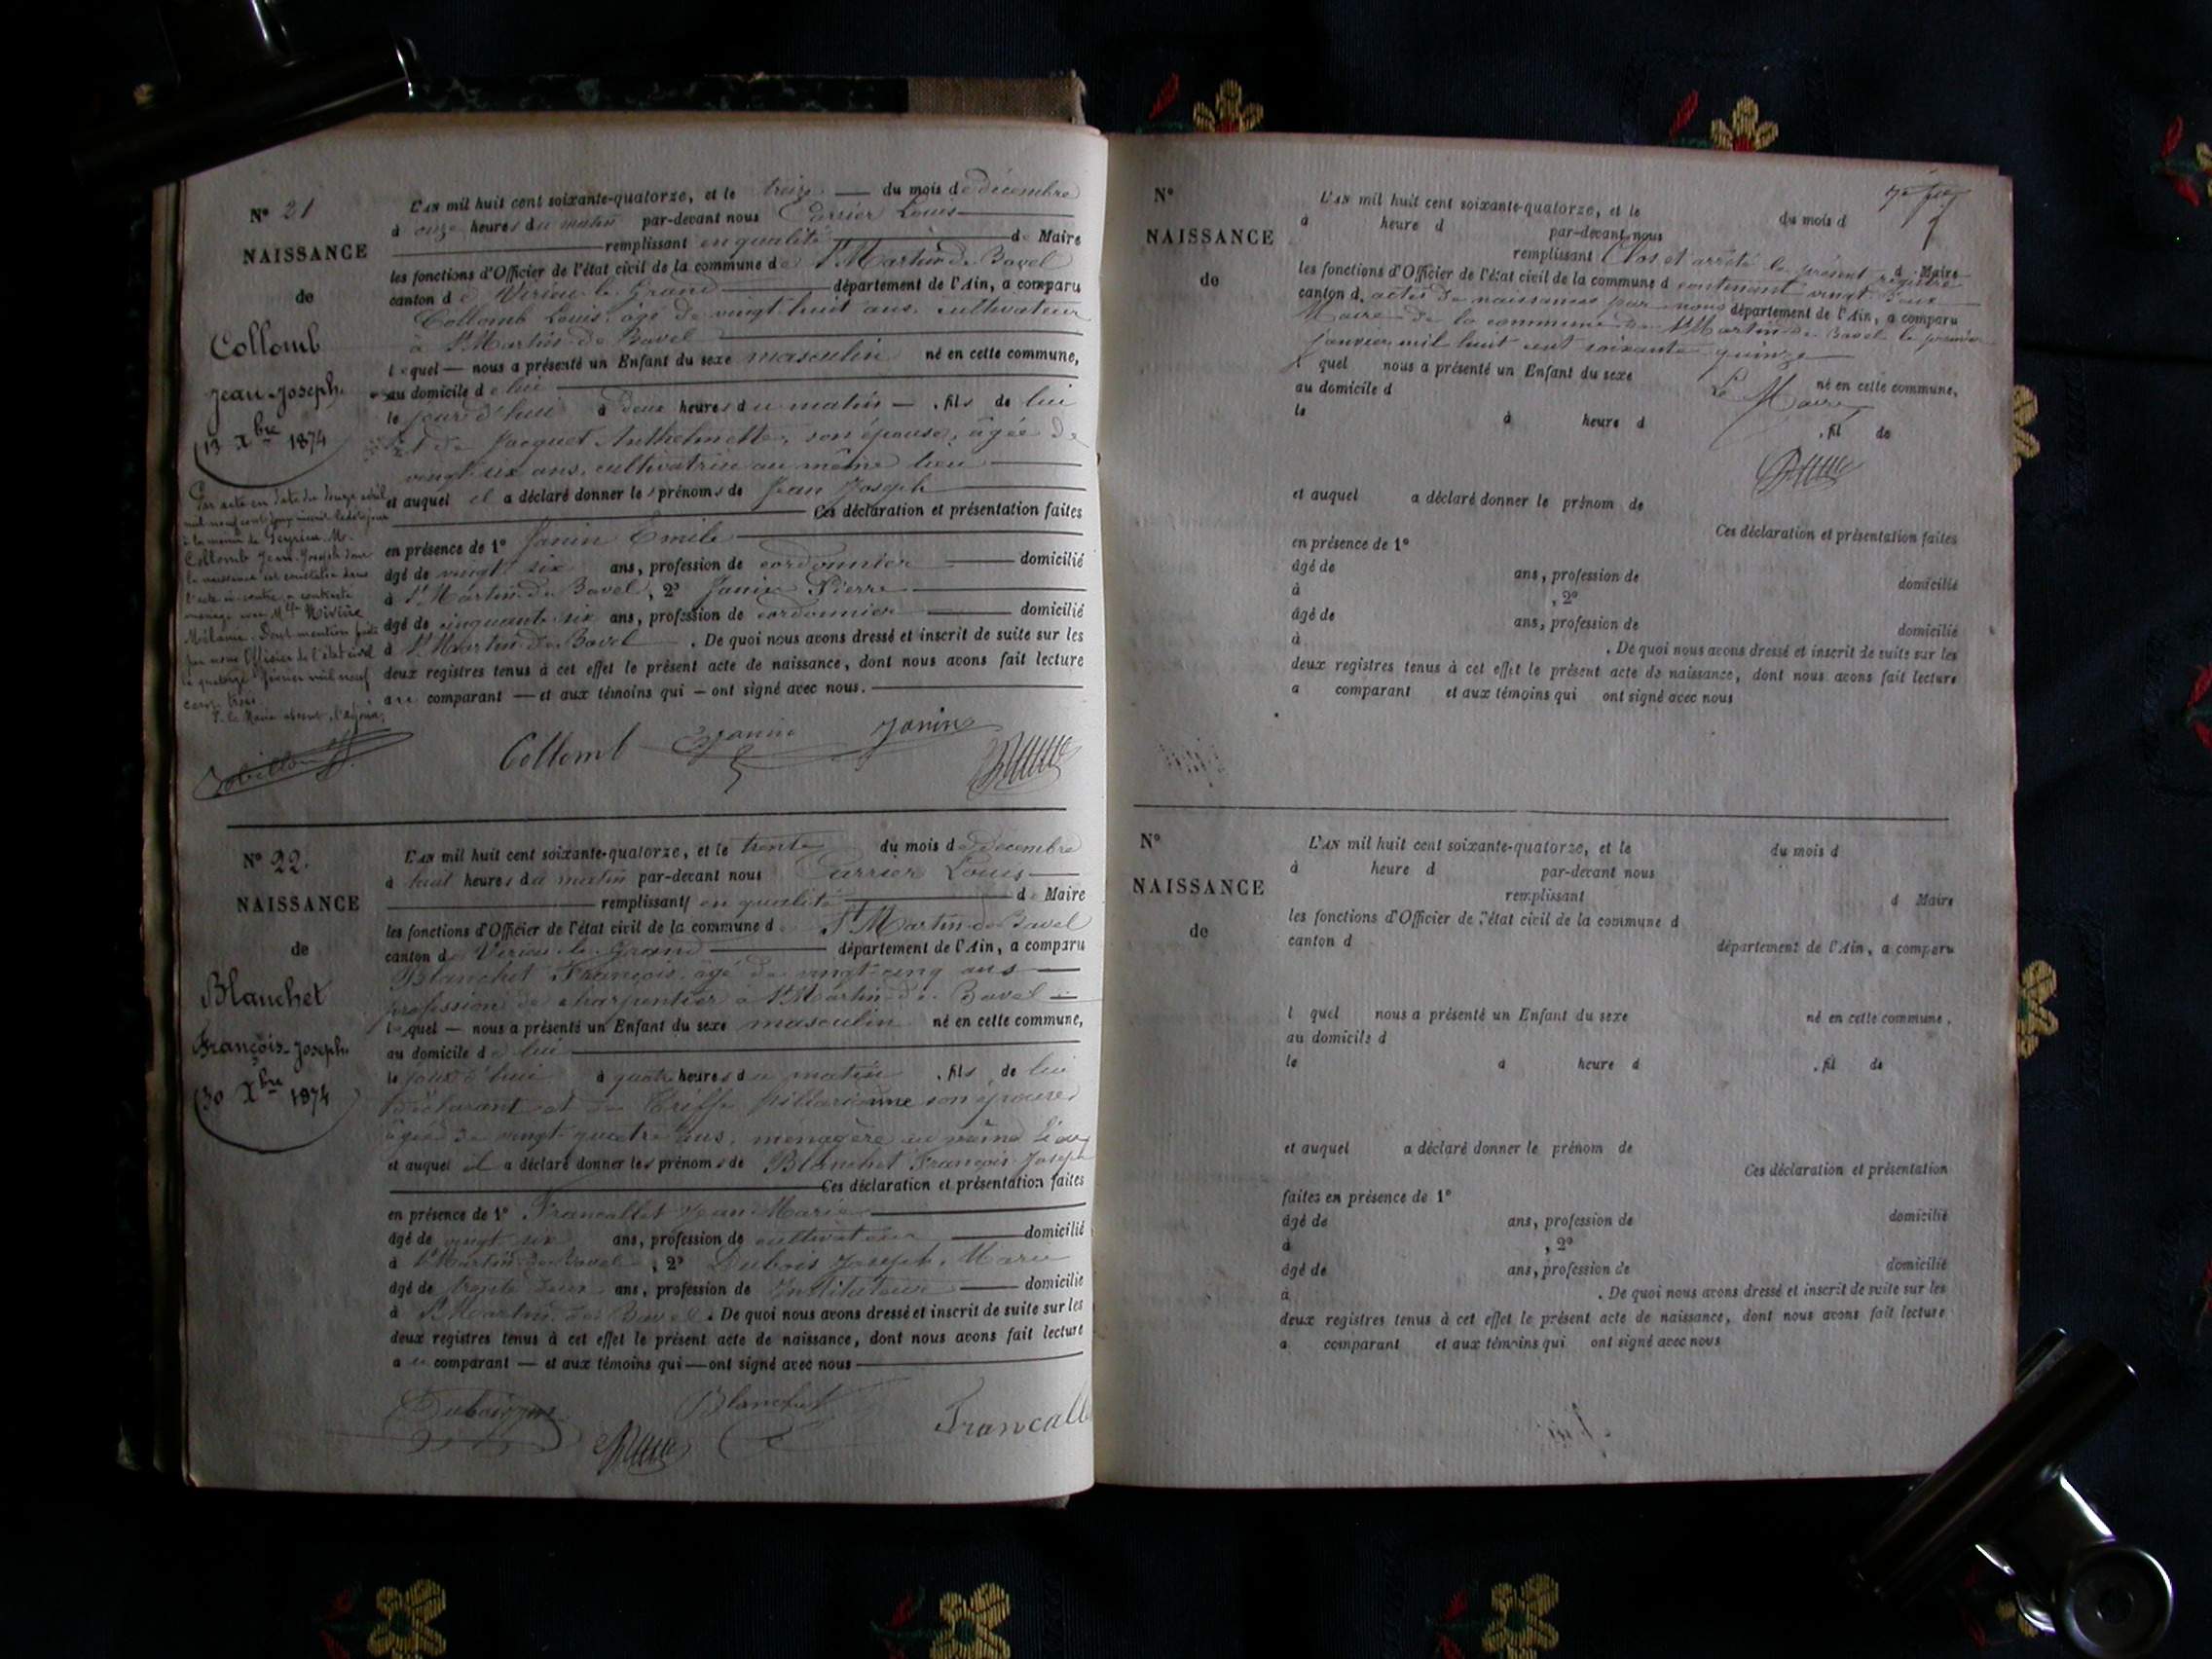 N° 21
NAISSANCE
de
Collomb
Jean-Joseph.
(13 Xbre 1874)
L'AN mil huit cent soixante-quatorze, et le treize du mois de décembre
à onze heures du matin par-devant nous Carrier Louis
remplissant en qualité de Maire
les fonctions d'Officier de l'état civil de la commune de St Martin-de-Bavel
canton de Virieu-le-Grand département de l'Ain, a comparu
Collomb Louis, âgé de vingt-huit ans, cultivateur
à St Martin-de-Bavel
lequel — nous a présenté un Enfant du sexe masculin né en cette commune,
au domicile de lui
le jour d'hui à deux heures du matin — , fils de lui
et de Jacquet Anthelmette, son épouse, âgée de
vingt-six ans, cultivatrice au même lieu
et auquel il a déclaré donner les prénoms de Jean Joseph
Ces déclaration et présentation faites
en présence de 1° Janin Emile
âgé de vingt six ans, profession de cordonnier domicilié
à St Martin-de-Bavel, 2° Janin Pierre
âgé de cinquante-six ans, profession de cordonnier domicilié
à St Martin-de-Bavel . De quoi nous avons dressé et inscrit de suite sur les
deux registres tenus à cet effet le présent acte de naissance, dont nous avons fait lecture
au comparant — et aux témoins qui — ont signé avec nous.
Par acte en date du douze avril
mil neuf cent
à la mairie de Peyrieu Mr
Collomb Jean-Joseph dont
la naissance est constatée dans
l'acte ci-contre a contracté
mariage avec Mlle Rivière
Mélanie. Dont mention faite
par nous Officier de l'état civil
le quatorze février mil neuf
cent trois
P. le Maire absent, l'adjoint,
Collomb Janin Janin
N° 22.
NAISSANCE
de
Blanchet
François-Joseph.
(30 Xbre 1874)
L'AN mil huit cent soixante-quatorze, et le trente du mois de décembre
à huit heures du matin par-devant nous Carrier Louis
remplissant en qualité de Maire
les fonctions d'Officier de l'état civil de la commune de St Martin-de-Bavel
canton de Virieu-le-Grand département de l'Ain, a comparu
Blanchet François, âgé de vingt-cinq ans
profession de charpentier à St Martin-de-Bavel
lequel — nous a présenté un Enfant du sexe masculin né en cette commune,
au domicile de lui
le jour d'hui à quatre heures du matin , fils de lui
déclarant et de son épouse
âgée de vingt-quatre ans, ménagère au même lieu
et auquel il a déclaré donner les prénoms de Blanchet François-Joseph
Ces déclaration et présentation faites
en présence de 1° Francallet Jean Marie
âgé de vingt six ans, profession de cultivateur domicilié
à St Martin-de-Bavel, 2° Dubois Joseph, Marie
âgé de trente deux ans, profession de Instituteur domicilié
à St Martin-de-Bavel. De quoi nous avons dressé et inscrit de suite sur les
deux registres tenus à cet effet le présent acte de naissance, dont nous avons fait lecture
au comparant — et aux témoins qui — ont signé avec nous
Blanchet Francall
N°
NAISSANCE
de
L'AN mil huit cent soixante-quatorze, et le du mois d
à heure d par-devant nous
remplissant d Maire
Clos et arrêté le présent registre
les fonctions d'Officier de l'état civil de la commune d
contenant vingt-deux
canton d département de l'Ain, a comparu
actes de naissances par nous
Maire de la commune de St Martin-de-Bavel le premier
janvier mil huit cent soixante-quinze
l quel nous a présenté un Enfant du sexe né en cette commune,
Le Maire,
au domicile d
le à heure d , fil de
et auquel a déclaré donner le prénom de
Ces déclaration et présentation faites
en présence de 1°
âgé de ans, profession de domicilié
à , 2°
âgé de ans, profession de domicilié
à . De quoi nous avons dressé et inscrit de suite sur les
deux registres tenus à cet effet le présent acte de naissance, dont nous avons fait lecture
a comparant et aux témoins qui ont signé avec nous
N°
NAISSANCE
de
L'AN mil huit cent soixante-quatorze, et le du mois d
à heure d par-devant nous
remplissant d Maire
les fonctions d'Officier de l'état civil de la commune d
canton d département de l'Ain, a comparu
l quel nous a présenté un Enfant du sexe né en cette commune,
au domicile d
le à heure d , fil de
et auquel a déclaré donner le prénom de
Ces déclaration et présentation
faites en présence de 1°
âgé de ans, profession de domicilié
à , 2°
âgé de ans, profession de domicilié
à . De quoi nous avons dressé et inscrit de suite sur les
deux registres tenus à cet effet le présent acte de naissance, dont nous avons fait lecture
a comparant et aux témoins qui ont signé avec nous